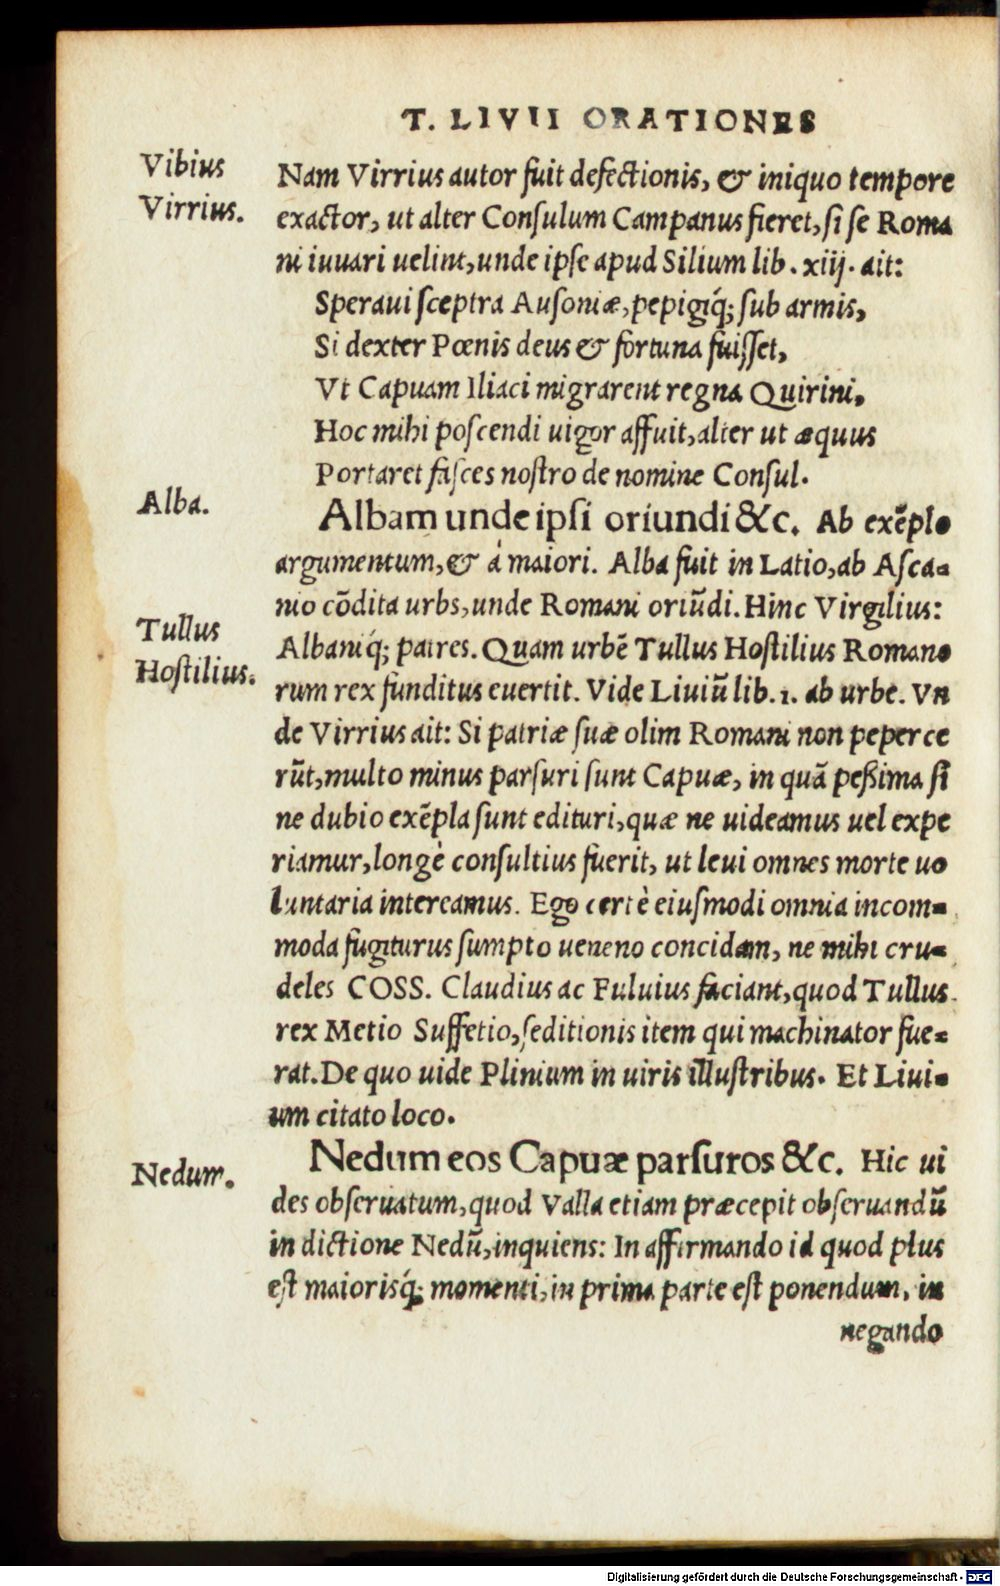 T. LIVII ORATIONES
Vibius
Virrius.
Nam Virrius autor fuit defectionis, & iniquo tempore
exactor, ut alter Consulum Campanus fieret, si se Roma
ni iuuari uelint, unde ipse apud Silium lib. xiij. ait:
Speraui sceptra Ausoniæ, pepigiq́; sub armis,
Si dexter Pœnis deus & fortuna fuisset,
Vt Capuam Iliaci migrarent regna Quirini,
Hoc mihi poscendi uigor affuit, alter ut æquus
Portaret fasces nostro de nomine Consul.
Alba.
Albam unde ipsi oriundi &c. Ab exẽplo
argumentum, & à maiori. Alba fuit in Latio, ab Asca-
nio cõdita urbs, unde Romani oriũdi. Hinc Virgilius:
Tullus
Hostilius.
Albaniq́; patres. Quam urbẽ Tullus Hostilius Romano
rum rex funditus euertit. Vide Liuiũ lib. 1. ab urbe. Vn
de Virrius ait: Si patriæ suæ olim Romani non peperce
rũt, multo minus parsuri sunt Capuæ, in quã peßima si
ne dubio exẽpla sunt edituri, quæ ne uideamus uel expe
riamur, longè consultius fuerit, ut leui omnes morte uo
luntaria intereamus. Ego certè eiusmodi omnia incom-
moda fugiturus sumpto ueneno concidam, ne mihi cru-
deles COSS. Claudius ac Fuluius faciant, quod Tullus
rex Metio Suffetio, seditionis item qui machinator fue-
rat. De quo uide Plinium in uiris illustribus. Et Liui-
um citato loco.
Nedum.
Nedum eos Capuæ parsuros &c. Hic ui
des obseruatum, quod Valla etiam præcepit obseruandũ
in dictione Nedũ, inquiens: In affirmando id quod plus
est maiorisq́; momenti, in prima parte est ponendum, in
negando
Digitalisierung gefördert durch die Deutsche Forschungsgemeinschaft - DFG